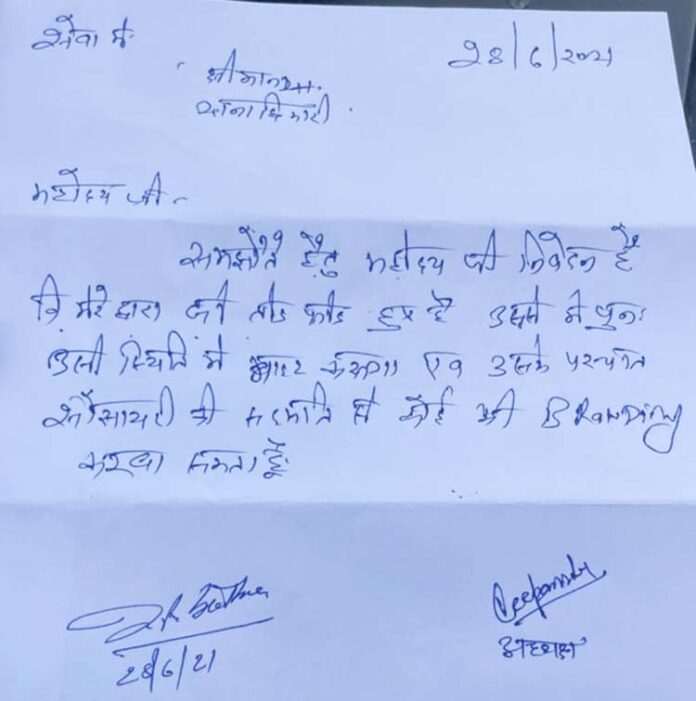 सेवा में
28/6/2021
श्रीमान
थानाधिकारी
महोदय जी -
समझौते हेतु महोदय जी निवेदन है
कि मेरे द्वारा जो तोड फोड हुए है उसमें में पुनः
उसी स्थिति में करूंगा एवं उसके पश्चात
सौसायटी की सहमति से कोई भी Branding
करवा सकता है
28/6/21
Deepanshu
अध्यक्ष